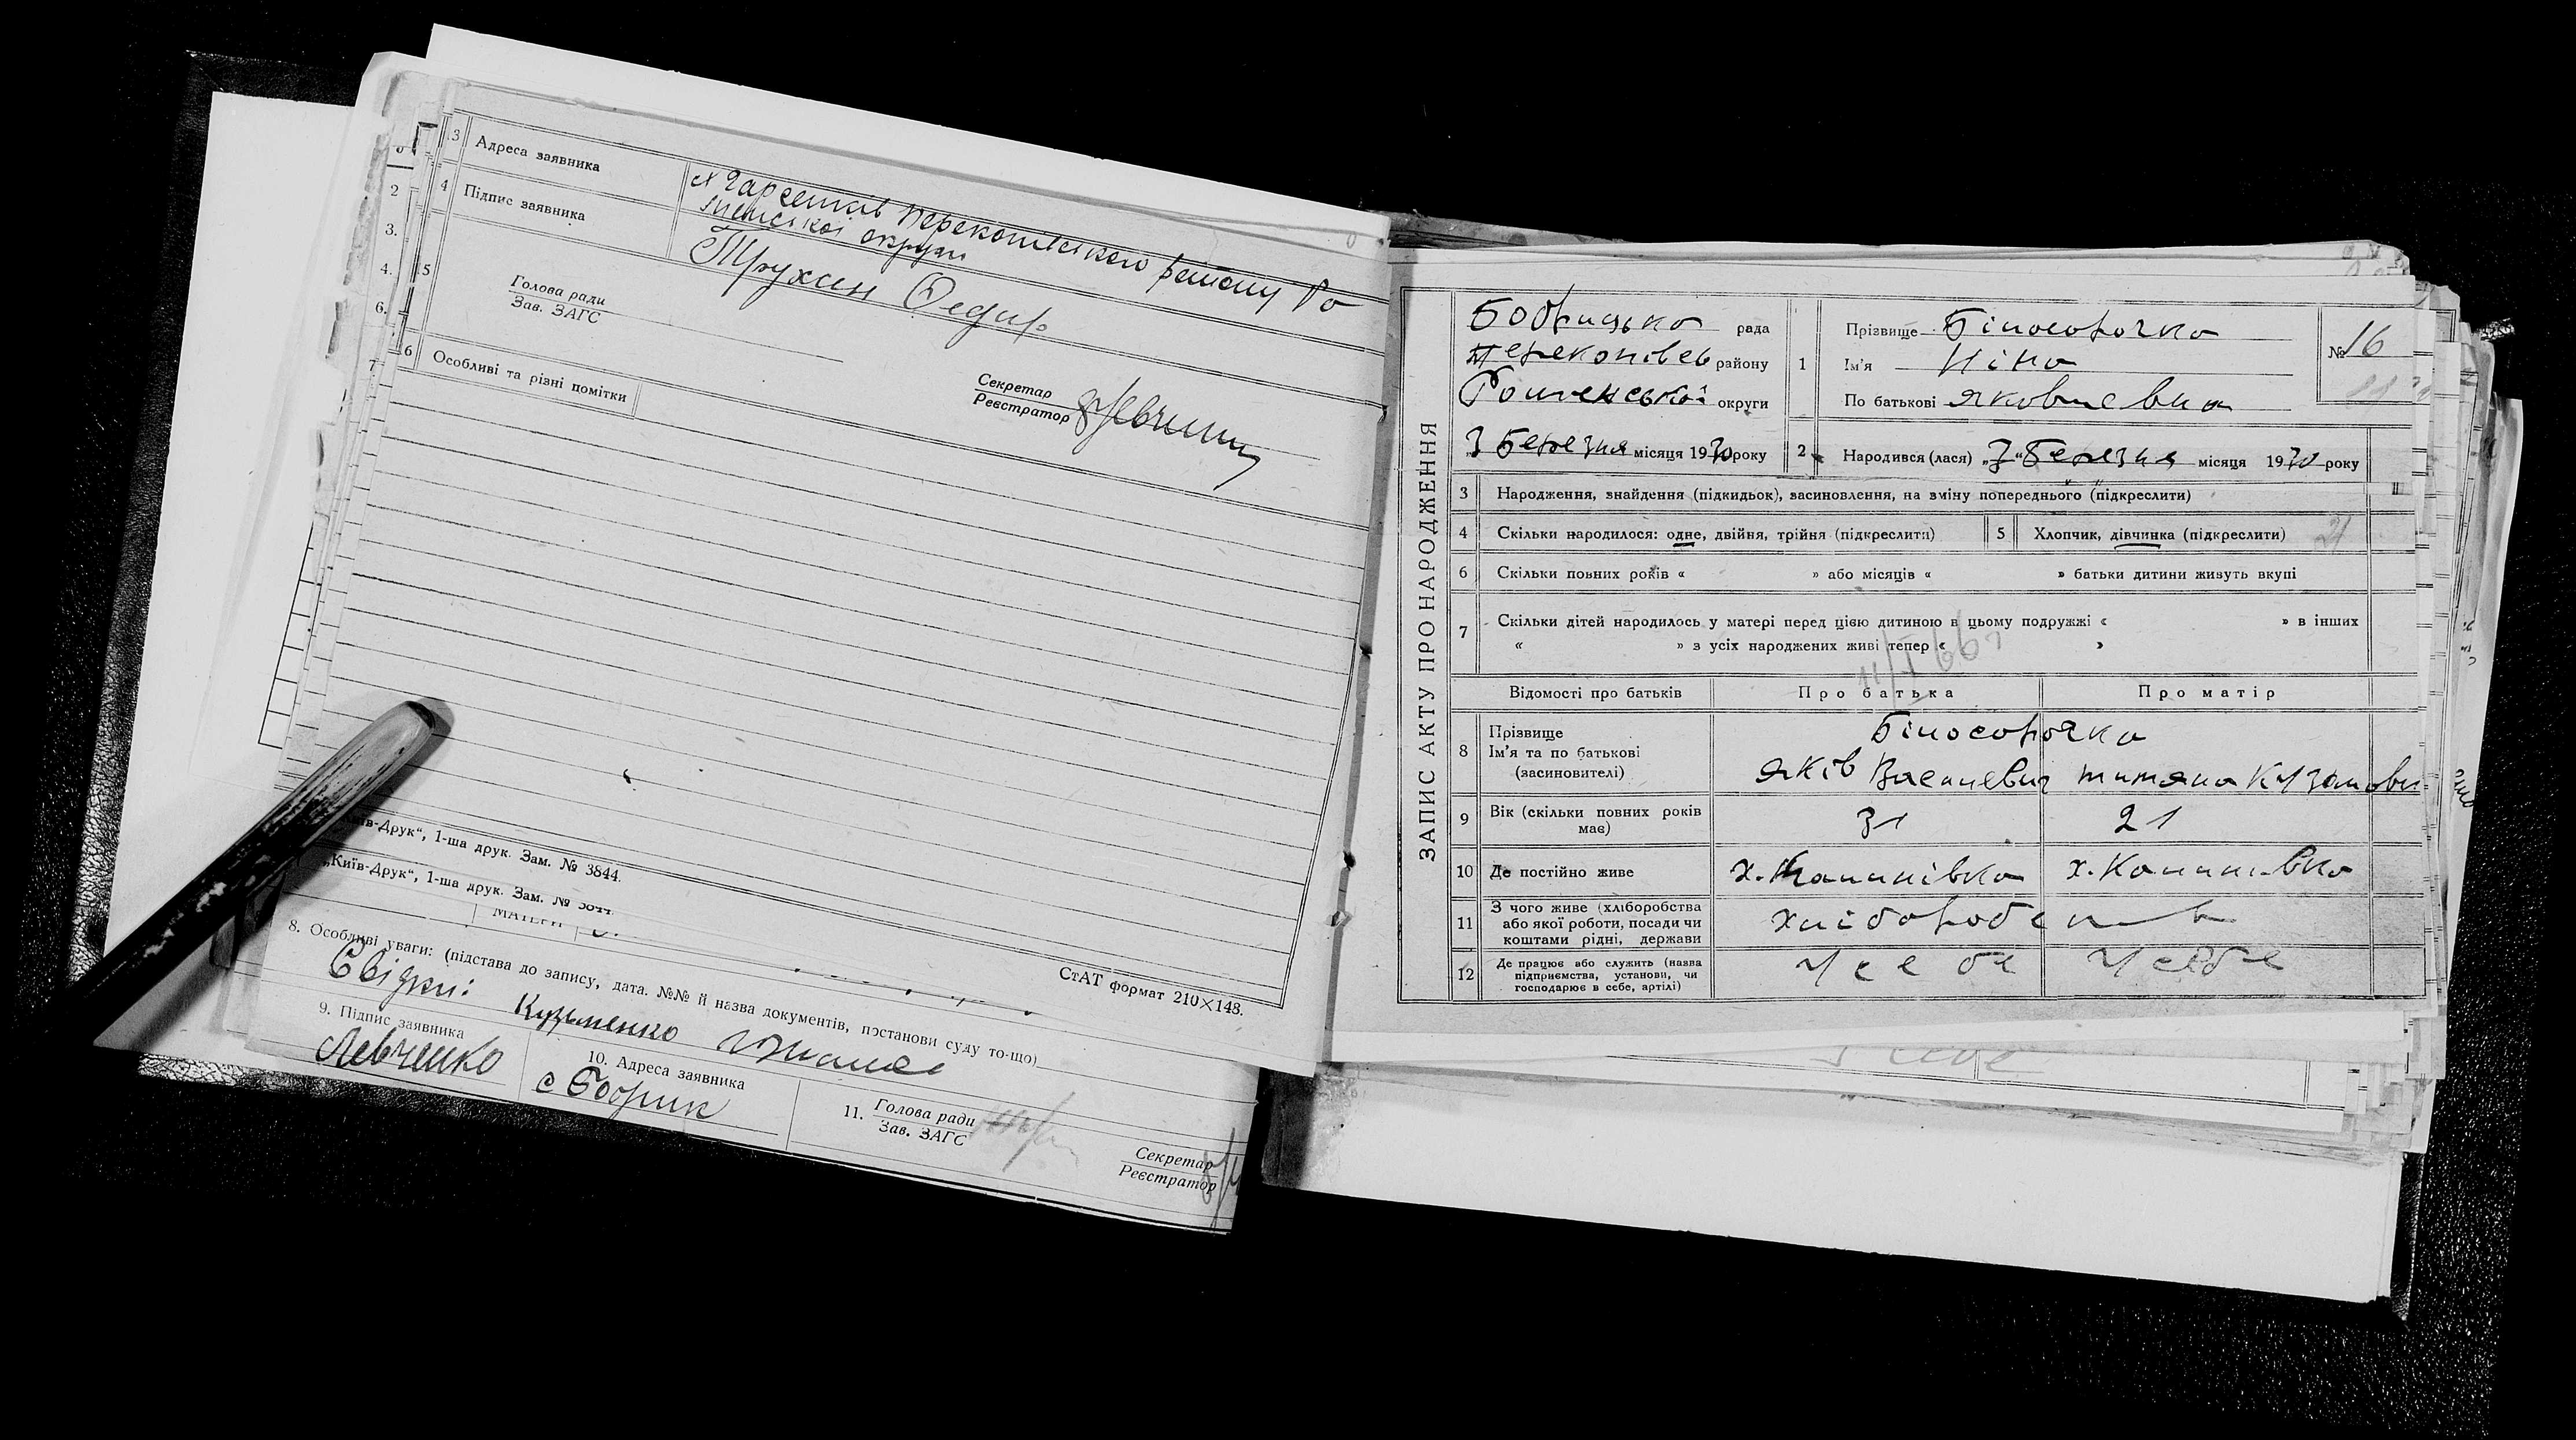 13 Адреса заявника
х Чарсетків Перекопівського району Ро
менської округи
4 Підпис заявника
Трухин Федир
15
Голова ради
Зав. ЗАГС
Секретар
Реєстратор
16 Особливі та різні помітки
2
3.
4.
6.
7
„Київ-Друк“, 1-ша друк. Зам. № 3844.
СтАТ формат 210×148.
„Київ-Друк“, 1-ша друк. Зам. № 3844.
8. Особливі уваги: (підстава до запису, дата. №№ й назва документів, постанови суду то-що)
Свідки: Кузьменко
9. Підпис заявника
Левченко
10. Адреса заявника
с Бобрик
11. Голова ради
Зав. ЗАГС
Секретар
Реєстратор
ЗАПИС АКТУ ПРО НАРОДЖЕННЯ
Бобрицька рада
Перекопівсь району
Роменської округи
„3 Березня місяця 1930 року
1 Прізвище Білосорочка
Ім'я Ніна
По батькові Яковлевна
№ 16
2 Народився (лася) „3“ Березня місяця 1930 року
3 Народження, знайдення (підкидьок), засиновлення, на зміну попереднього (підкреслити)
4 Скільки народилося: одне, двійня, трійня (підкреслити)
5 Хлопчик, дівчинка (підкреслити)
6 Скільки повних років « » або місяців « » батьки дитини живуть вкупі
7 Скільки дітей народилось у матері перед цією дитиною в цьому подружжі « » в інших
« » з усіх народжених живі тепер « »
11/I 66
Відомості про батьків Про батька Про матір
8 Прізвище
Ім'я та по батькові
(засиновителі)
Білосорочка
Яків Василевич Титяна Кузмови
9 Вік (скільки повних років має) 31 21
10 Де постійно живе х. Калинівка х. Калинівка
11 З чого живе (хліборобства
або якої роботи, посади чи
коштами рідні, держави
хлібороб
12 Де працює або служить (назва
підприємства, установи, чи
господарює в себе, артілі)
У себе У себе